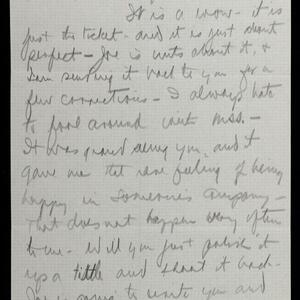 It is a wow - it is
just the ticket - and it is just about
perfect - Joe is nuts about it, &
I am sending it back to you for a
few corrections - I always hate
to fool around with mss. -
It was grand seeing you, and it
gave me the rare feeling of being
happy in someone's company -
That does not happen very often
to me. Will you just polish it
up a little and shoot it back -
Joe is going to write you and